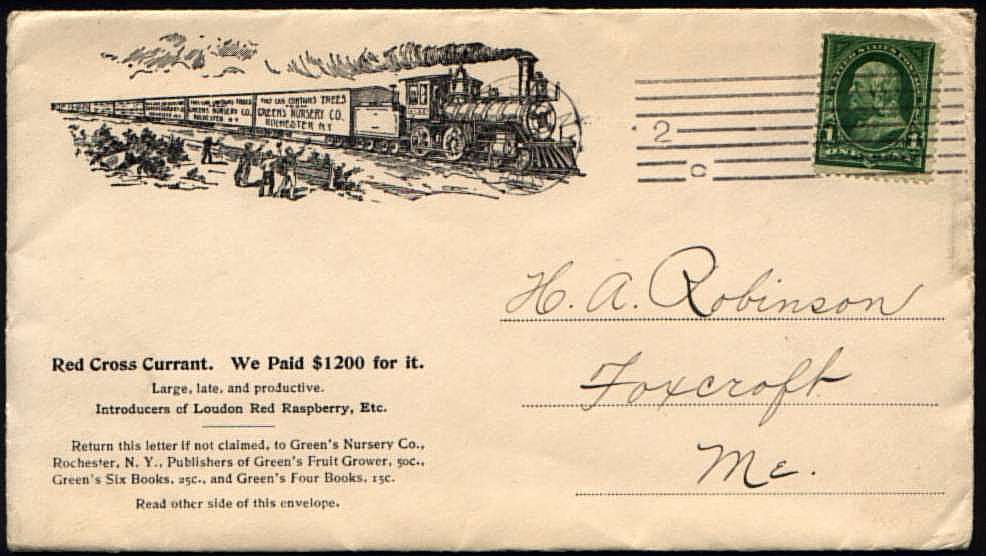 THIS CAR CONTAINS TREES
GREEN'S NURSERY CO.
ROCHESTER N.Y.
2
UNITED STATES POSTAGE
1 1
ONE CENT
H. A. Robinson
Foxcroft
Me.
Red Cross Currant. We Paid $1200 for it.
Large, late, and productive.
Introducers of Loudon Red Raspberry, Etc.
Return this letter if not claimed, to Green's Nursery Co.,
Rochester, N. Y., Publishers of Green's Fruit Grower, 50c.,
Green's Six Books, 25c., and Green's Four Books, 15c.
Read other side of this envelope.